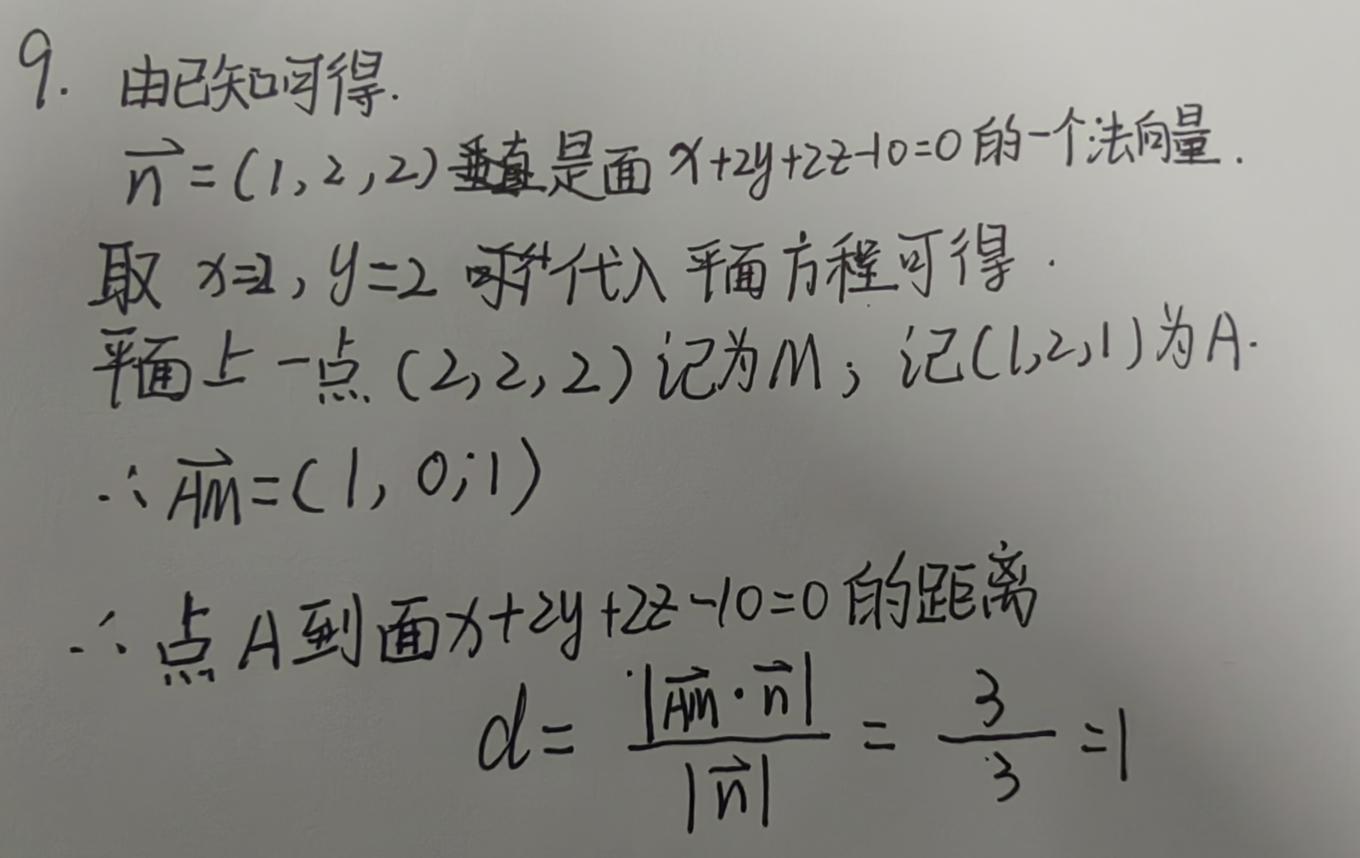 9. 由已知可得.
n⃗ = (1, 2, 2) 是面 x+2y+2z-10=0 的一个法向量.
取 x=2, y=2 代入平面方程可得.
平面上一点 (2, 2, 2) 记为M; 记(1,2,1)为A.
∴ AM⃗ = (1, 0, 1)
∴ 点A到面x+2y+2z-10=0的距离
d = |AM⃗ · n⃗| / |n⃗| = 3/3 = 1